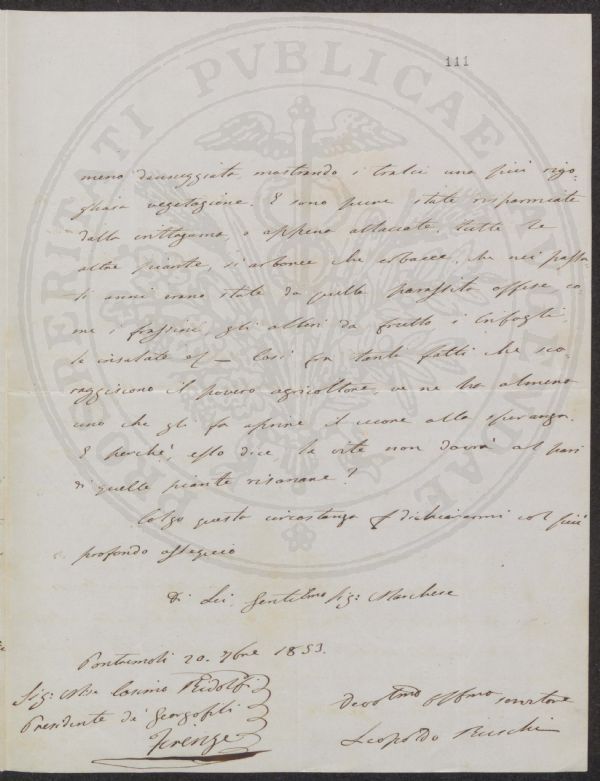 111
PROSPERITATI PVBLICAE AVGENDAE
meno danneggiata, mostrando i tralci una più rigo-
gliosa vegetazione. E sono pure state risparmiate
dalla crittogama, o appena attaccate, tutte le
altre piante, sì arboree che erbacee, che nei passa-
ti anni erano state da quella parassita offese co-
me i frassini, gli alberi da frutto i
le insalate &c — Così fra tanti fatti che sco-
raggiscono il povero agricoltore, ve ne ha almeno
uno che gli fa aprire il cuore alla speranza.
E perchè, esso dice, la vite non dovrà al pari
di quelle piante risanare?
Colgo questa circostanza p dichiararmi col più
profondo ossequio
Di Lei, Gentilmo Sig: Marchese
Pontremoli 20. 7bre 1853.
Sig: Mse Cosimo Ridolfi
Presidente dei Georgofili
Firenze
Devotmo Obbmo servitore
Leopoldo Ruschi